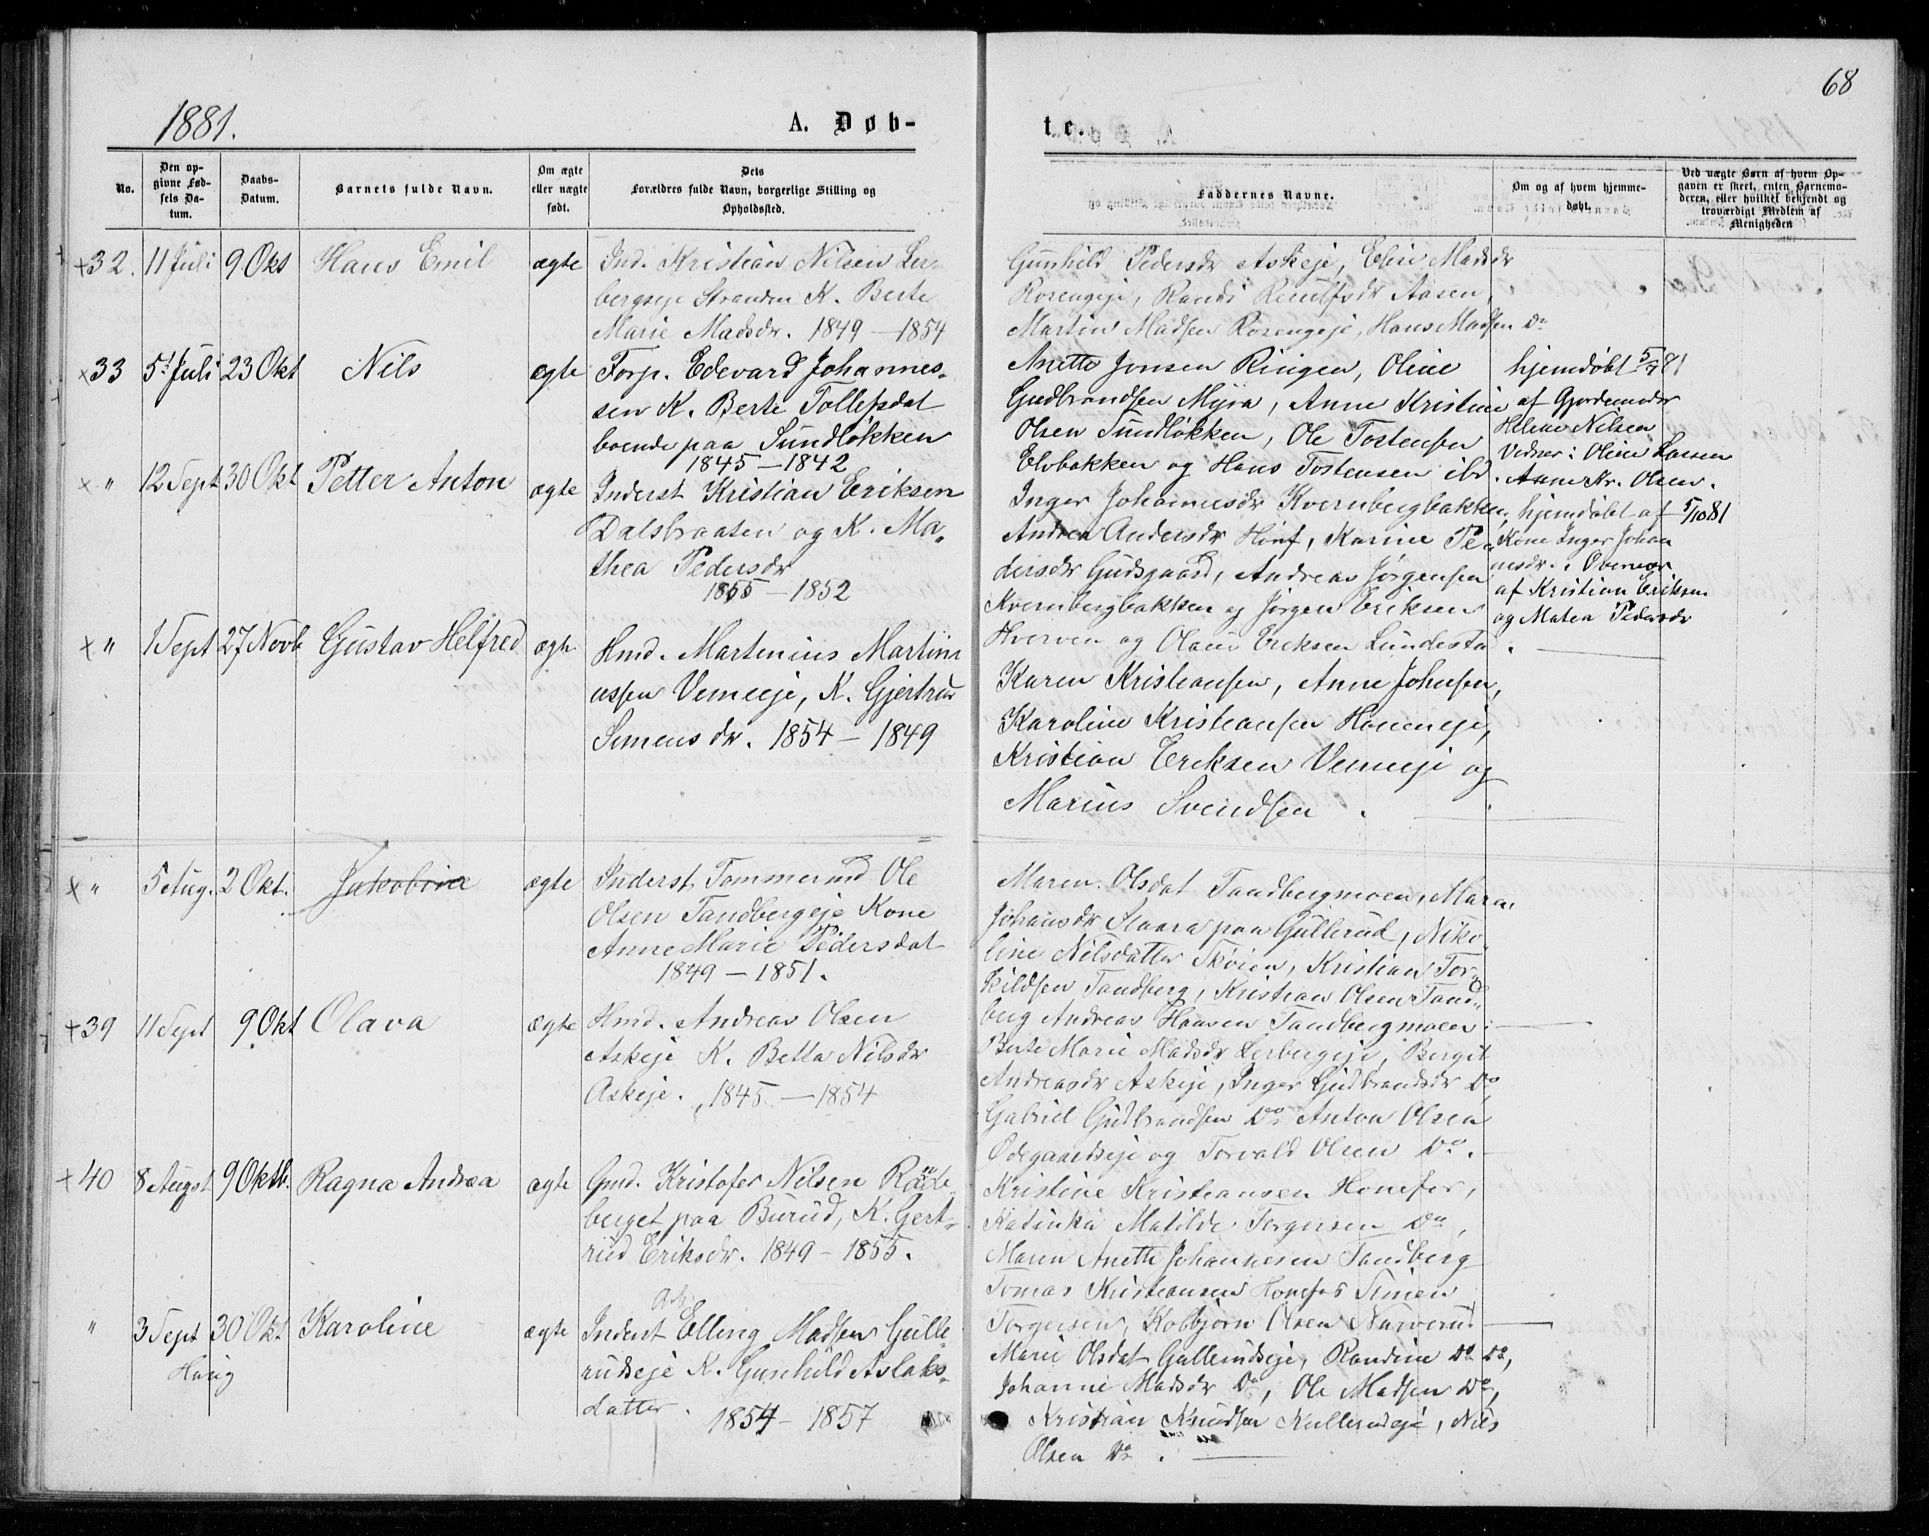 68
1881.
A. Døb-
te.
No.
Den op-
givne Fød-
sels Da-
tum.
Daabs-
Datum.
Barnets fulde Navn.
Om ægte
eller uægte
født.
Dets
Forældres fulde Navn, borgerlige Stilling og
Opholdssted.
Faddernes Navne.
Om og af hvem hjemme-
døbt.
Ved uægte Børn af hvem Op-
gaven er skeet, enten Barnemo-
deren, eller hvilket bekjendt og
troværdigt Medlem af
Menigheden
+32. 11 Juli 9 Okt Hans Emil ægte Ind. Kristian Nilsen Ler-
bergseje Stranden K. Berte
Marie Madsdr. 1849 - 1854
Gunhild Pedersdr Askeje, Eline Madsdr
Rosengeje, Randi Aasen,
Martin Madsen Rosengeje, Hans Madsen Do
×33 5t Juli 23 Okt Nils ægte Forp. Edevard Johannes-
sen K. Berte Tollefsdat
boende paa Sundløkken
1845 - 1842
Anette Jonsen Ringen, Oline
Gudbrandsen Myra, Anne Kristine
Olsen Sundløkken, Ole Tostensen
Elvbakken og Hans Tostensen ibd.
hjemdøbt 5/7 81
af Gjordemoder
Helene Nilsen
Vidner: Oline Larsen
Anne Kr. Olsen.
× " 12 Sept 30 Okt Petter Anton ægte Inderst Kristian Eriksen
Dalsbraaten og K. Ma-
thea Pedersdr
1855 - 1852
Inger Johannesdr Kvernbergbakken,
Andrea Andersdr Hønf, Karine Pe-
dersdr Gudsgaard, Andreas Jørgensen
Kvernbergbakken og Jørgen Eriksen
Hverven og Olaus Eriksen Lundesta
hjemdøbt af 5/10 81
Kone Inger Johan
nesdr. i Overvær
af Kristian Eriksen
og Matea Pedersdr
× " 1 Sept 27 Novb Gustav Helfred ægte Hmd. Martinius Martini
ussen Vemeeje, K. Gjertrud
Simensdr. 1854 - 1849
Karen Kristiansen, Anne Johnsen,
Karoline Kristiansen Høneneje,
Kristian Eriksen Vemeeje og
Marius Svendsen.
× " 5 Aug. 2 Okt. Jakobine ægte Inderst Tommermd Ole
Olsen Tandbergeje Kone
Anne Marie Pedersdat
1849 - 1851.
Maren Olsdat Tandbergmoen, Maren
Johansdr Slaara paa Gullerud, Niko-
line Nilsdatter Skøien, Kristian Tor-
kildsen Tandberg, Kristian Olsen Tand-
berg Andreas Hansen Tandbergmoen.
+39 11 Sept 9 Okt Olava ægte Hmd. Andreas Olsen
Askeje K. Betta Nilsdr
Askeje. 1845 - 1854
Berte Marie Madsdr Lerbergeje, Bergit
Andreasdr Askeje, Inger Gudbrandsdr Do
Gabriel Gudbrandsen Do Anton Olsen
Ødegaardseje og Torvald Olsen Do.
+40 8 Augst 9 Oktb. Ragna Andrea ægte Gmd. Kristofer Nilsen
berget paa Burud, K. Gert-
rud Eriksdr. 1849 - 1855.
Kristine Kristiansen Hønefos,
Katinka Matilde Torgersen Do,
Maren Anette Johannesen Tandberg
Tomas Kristiansen Honefos Simen
Torgersen, Kolbjørn Olsen Narverud
" 3 Sept 30 Okt Karoline ægte Inderst Elling Madsen Gulle-
Haug
rudseje K. Gunhild Aslaks-
datter. 1854 - 1857
Marie Olsdat Gullerudseje, Randine Do Do,
Johanne Madsdr Do, Ole Madsen Do,
Kristian Knudsen Kullerudeje, Nils
Olsen Do.